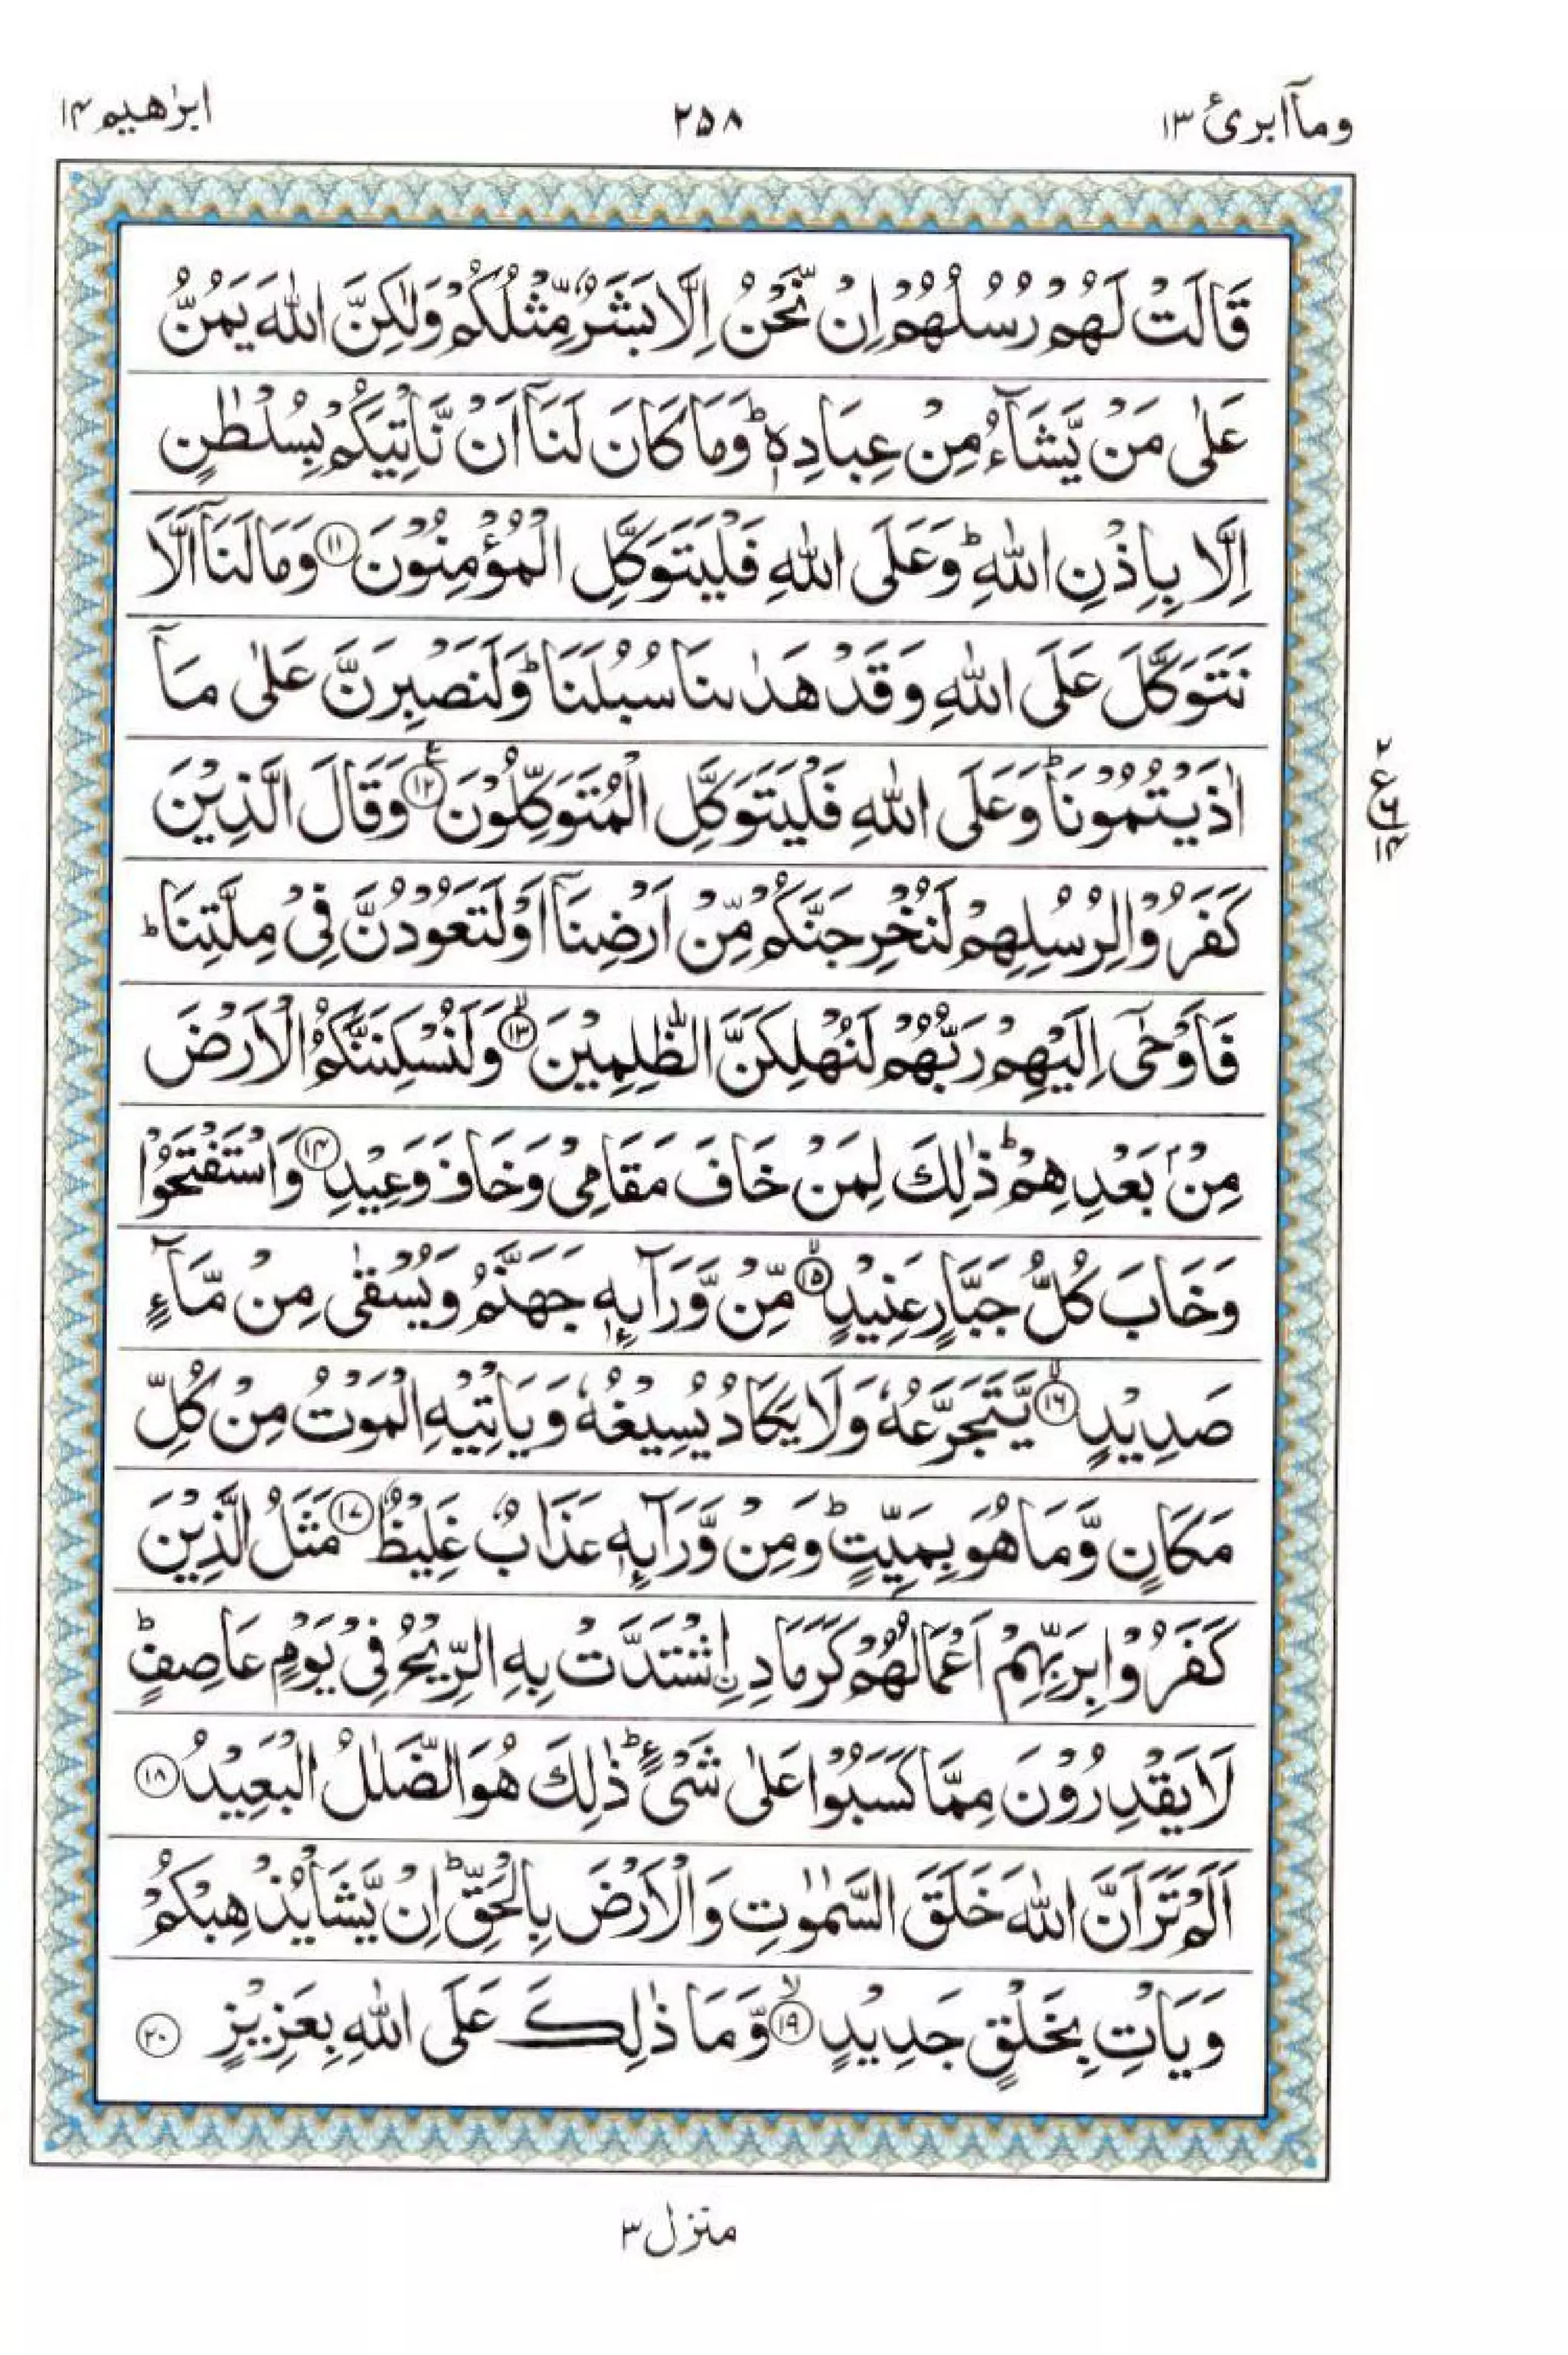 وماۤابرئ ١٣
٢٥٨
ابرٰهيم ١٤
قَالَتْ لَهُمْ رُسُلُهُمْ اِنْ نَّحْنُ اِلَّا بَشَرٌ مِّثْلُكُمْ وَلٰكِنَّ اللّٰهَ يَمُنُّ
عَلٰى مَنْ يَّشَآءُ مِنْ عِبَادِهٖؕ وَمَا كَانَ لَنَاۤ اَنْ نَّاْتِيَكُمْ بِسُلْطٰنٍ
اِلَّا بِاِذْنِ اللّٰهِؕ وَعَلَى اللّٰهِ فَلْيَتَوَكَّلِ الْمُؤْمِنُوْنَ ۝١١ وَمَا لَنَاۤ اَلَّا
نَتَوَكَّلَ عَلَى اللّٰهِ وَقَدْ هَدٰىنَا سُبُلَنَاؕ وَلَنَصْبِرَنَّ عَلٰى مَاۤ
اٰذَيْتُمُوْنَاؕ وَعَلَى اللّٰهِ فَلْيَتَوَكَّلِ الْمُتَوَكِّلُوْنَ ۝١٢ۧ وَقَالَ الَّذِيْنَ
٢
ع
٦
١٤
كَفَرُوْا لِرُسُلِهِمْ لَنُخْرِجَنَّكُمْ مِّنْ اَرْضِنَاۤ اَوْ لَتَعُوْدُنَّ فِيْ مِلَّتِنَاؕ
فَاَوْحٰۤى اِلَيْهِمْ رَبُّهُمْ لَنُهْلِكَنَّ الظّٰلِمِيْنَ ۝١٣ۙ وَلَنُسْكِنَنَّكُمُ الْاَرْضَ
مِنْۢ بَعْدِهِمْؕ ذٰلِكَ لِمَنْ خَافَ مَقَامِيْ وَخَافَ وَعِيْدِ ۝١٤ وَاسْتَفْتَحُوْا
وَخَابَ كُلُّ جَبَّارٍ عَنِيْدٍ ۝١٥ۙ مِّنْ وَّرَآىِٕهٖ جَهَنَّمُ وَيُسْقٰى مِنْ مَّآءٍ
صَدِيْدٍ ۝١٦ۙ يَّتَجَرَّعُهٗ وَلَا يَكَادُ يُسِيْغُهٗ وَيَاْتِيْهِ الْمَوْتُ مِنْ كُلِّ
مَكَانٍ وَّمَا هُوَ بِمَيِّتٍؕ وَمِنْ وَّرَآىِٕهٖ عَذَابٌ غَلِيْظٌ ۝١٧ مَثَلُ الَّذِيْنَ
كَفَرُوْا بِرَبِّهِمْ اَعْمَالُهُمْ كَرَمَادِ اِ۟شْتَدَّتْ بِهِ الرِّيْحُ فِيْ يَوْمٍ عَاصِفٍؕ
لَا يَقْدِرُوْنَ مِمَّا كَسَبُوْا عَلٰى شَيْءٍؕ ذٰلِكَ هُوَ الضَّلٰلُ الْبَعِيْدُ ۝١٨
اَلَمْ تَرَ اَنَّ اللّٰهَ خَلَقَ السَّمٰوٰتِ وَالْاَرْضَ بِالْحَقِّؕ اِنْ يَّشَاْ يُذْهِبْكُمْ
وَيَاْتِ بِخَلْقٍ جَدِيْدٍ ۝١٩ۙ وَّمَا ذٰلِكَ عَلَى اللّٰهِ بِعَزِيْزٍ ۝٢٠
منزل ٣